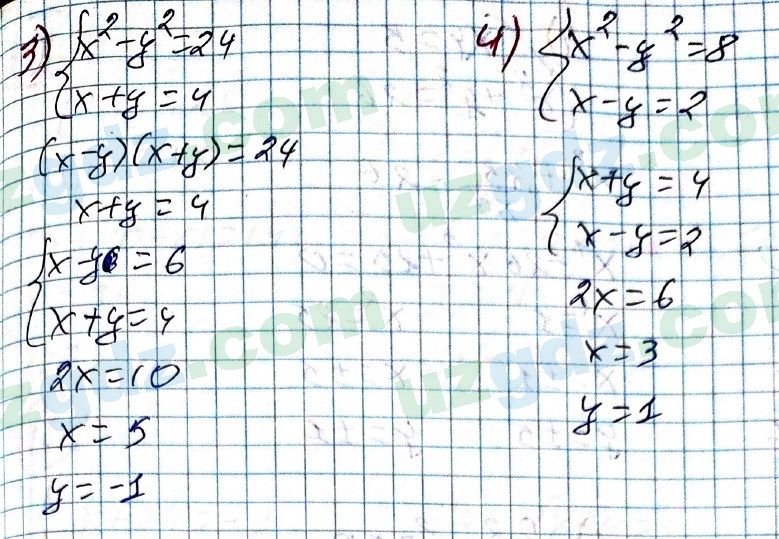 3) { x² - y² = 24
x + y = 4
(x - y)(x + y) = 24
x + y = 4
{ x - y = 6
x + y = 4
2x = 10
x = 5
y = -1
4) { x² - y² = 8
x - y = 2
{ x + y = 4
x - y = 2
2x = 6
x = 3
y = 1
uzgdz.com
uzgdz.com
uzgdz.com
uzgdz.com